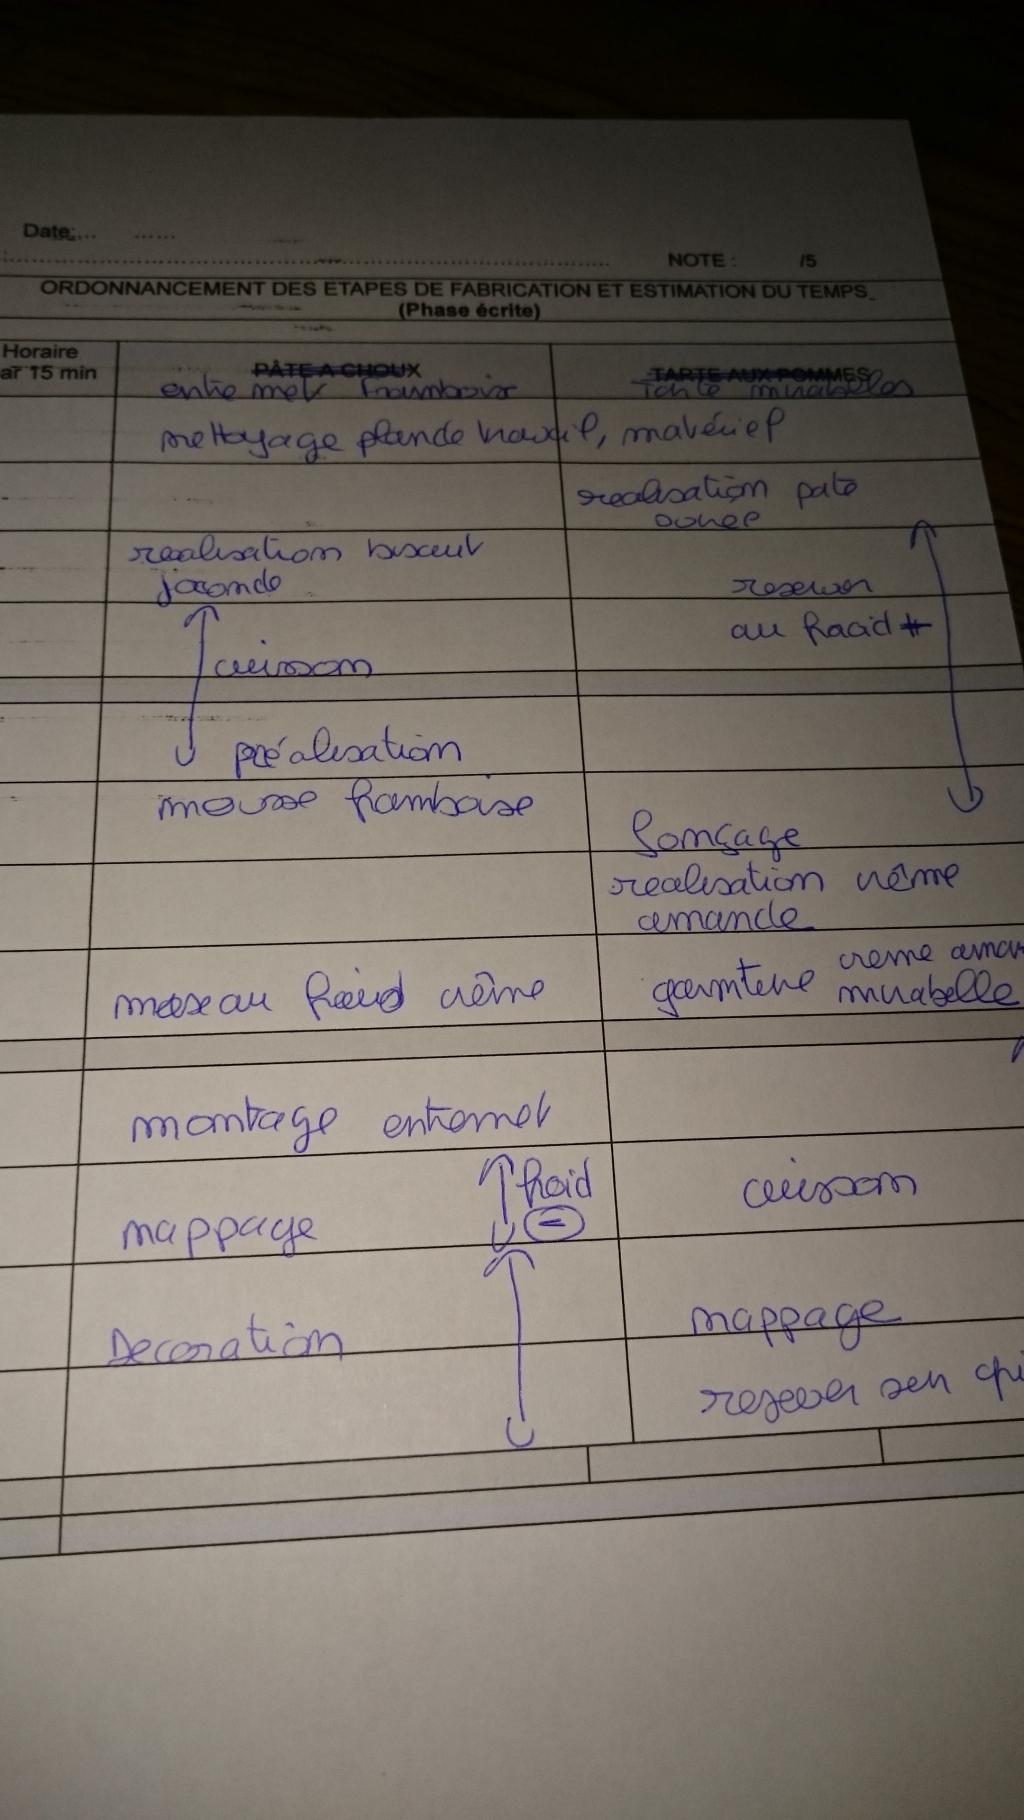 Date:... ......
NOTE : /5
ORDONNANCEMENT DES ETAPES DE FABRICATION ET ESTIMATION DU TEMPS
(Phase écrite)
Horaire
ar 15 min
PÂTE A CHOUX
TARTE AUX POMMES
entre met framboise
tarte mirabelles
nettoyage plan de travail, matériel
realisation pate
sucree
realisation biscuit
joconde
reserver
au froid
cuisson
préalisation
mousse framboise
fonçage
realisation crême
amande
mise au froid crême
garniture
creme aman
mirabelle
montage entremet
froid
-
cuisson
nappage
nappage
Decoration
reserver sur